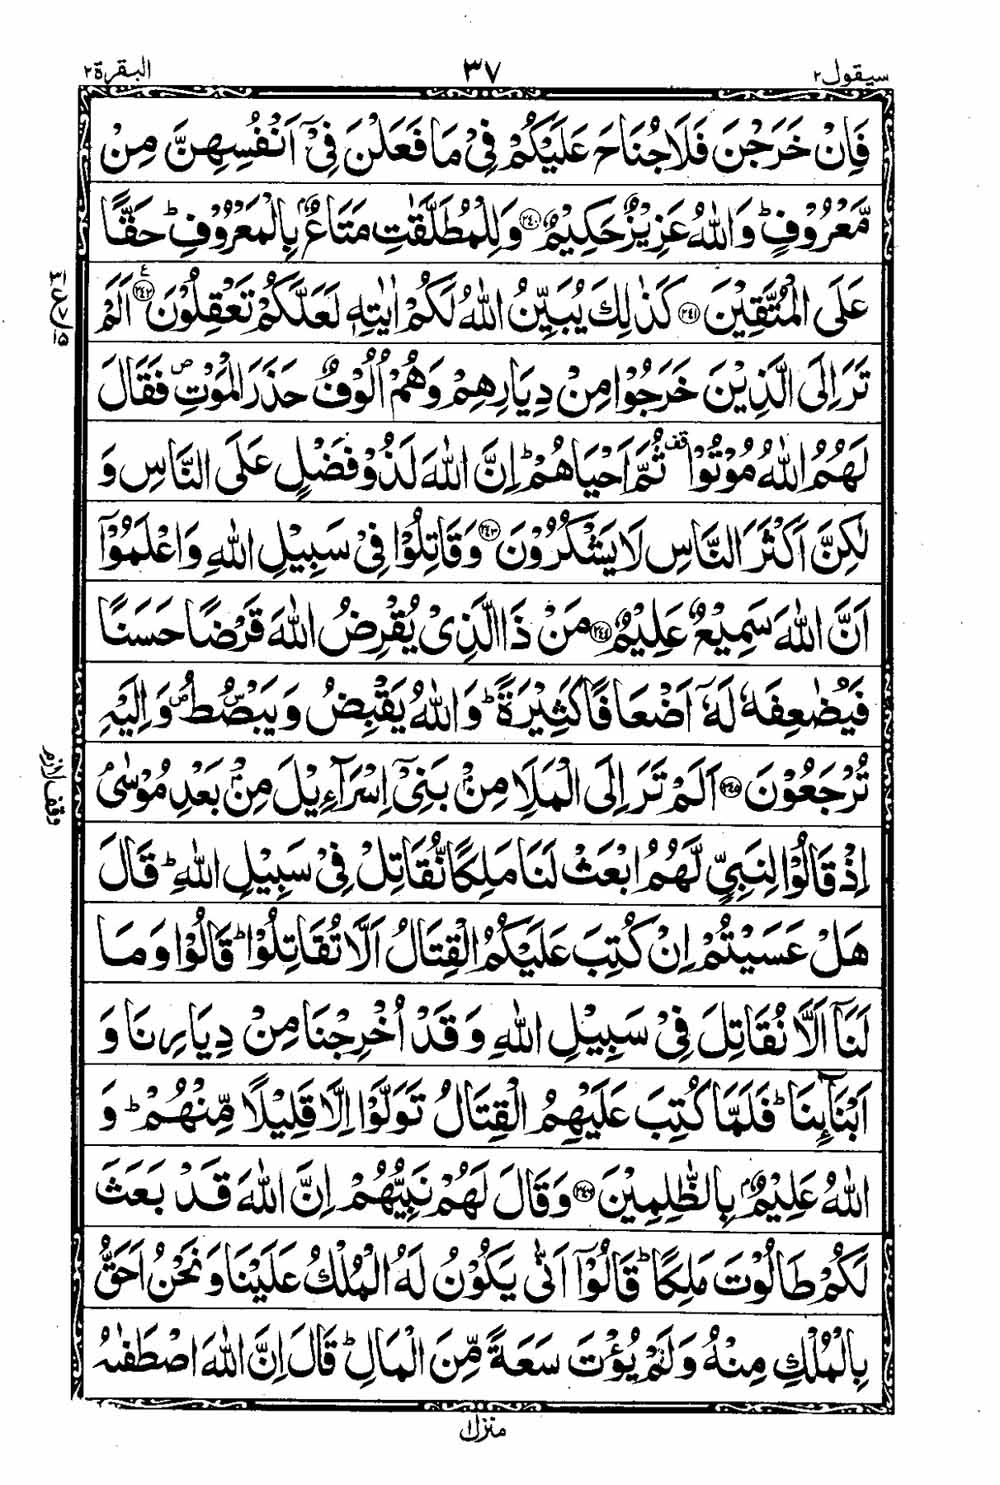 سيقول ٢
٣٧
البقرة ٢
فَاِنْ خَرَجْنَ فَلَا جُنَاحَ عَلَيْكُمْ فِيْ مَا فَعَلْنَ فِيْٓ اَنْفُسِهِنَّ مِنْ
مَّعْرُوْفٍ ؕ وَاللّٰهُ عَزِيْزٌ حَكِيْمٌ ﴿٢٤٠﴾ وَلِلْمُطَلَّقٰتِ مَتَاعٌۢ بِالْمَعْرُوْفِ ؕ حَقًّا
عَلَى الْمُتَّقِيْنَ ﴿٢٤١﴾ كَذٰلِكَ يُبَيِّنُ اللّٰهُ لَكُمْ اٰيٰتِهٖ لَعَلَّكُمْ تَعْقِلُوْنَ ﴿٢٤٢﴾ ع اَلَمْ
تَرَ اِلَى الَّذِيْنَ خَرَجُوْا مِنْ دِيَارِهِمْ وَهُمْ اُلُوْفٌ حَذَرَ الْمَوْتِ ۪ فَقَالَ
لَهُمُ اللّٰهُ مُوْتُوْا قف ثُمَّ اَحْيَاهُمْ ؕ اِنَّ اللّٰهَ لَذُوْ فَضْلٍ عَلَى النَّاسِ وَ
لٰكِنَّ اَكْثَرَ النَّاسِ لَا يَشْكُرُوْنَ ﴿٢٤٣﴾ وَقَاتِلُوْا فِيْ سَبِيْلِ اللّٰهِ وَاعْلَمُوْٓا
اَنَّ اللّٰهَ سَمِيْعٌ عَلِيْمٌ ﴿٢٤٤﴾ مَنْ ذَا الَّذِيْ يُقْرِضُ اللّٰهَ قَرْضًا حَسَنًا
فَيُضٰعِفَهٗ لَهٗٓ اَضْعَافًا كَثِيْرَةً ؕ وَاللّٰهُ يَقْبِضُ وَيَبْصُۜطُ ۪ وَاِلَيْهِ
تُرْجَعُوْنَ ﴿٢٤٥﴾ اَلَمْ تَرَ اِلَى الْمَلَاِ مِنْۢ بَنِيْٓ اِسْرَآءِيْلَ مِنْۢ بَعْدِ مُوْسٰى ۘ
وقف لازم
اِذْ قَالُوْا لِنَبِيٍّ لَّهُمُ ابْعَثْ لَنَا مَلِكًا نُّقَاتِلْ فِيْ سَبِيْلِ اللّٰهِ ؕ قَالَ
هَلْ عَسَيْتُمْ اِنْ كُتِبَ عَلَيْكُمُ الْقِتَالُ اَلَّا تُقَاتِلُوْا ؕ قَالُوْا وَمَا
لَنَآ اَلَّا نُقَاتِلَ فِيْ سَبِيْلِ اللّٰهِ وَقَدْ اُخْرِجْنَا مِنْ دِيَارِنَا وَ
اَبْنَآئِنَا ؕ فَلَمَّا كُتِبَ عَلَيْهِمُ الْقِتَالُ تَوَلَّوْا اِلَّا قَلِيْلًا مِّنْهُمْ ؕ وَ
اللّٰهُ عَلِيْمٌۢ بِالظّٰلِمِيْنَ ﴿٢٤٦﴾ وَقَالَ لَهُمْ نَبِيُّهُمْ اِنَّ اللّٰهَ قَدْ بَعَثَ
لَكُمْ طَالُوْتَ مَلِكًا ؕ قَالُوْٓا اَنّٰى يَكُوْنُ لَهُ الْمُلْكُ عَلَيْنَا وَنَحْنُ اَحَقُّ
بِالْمُلْكِ مِنْهُ وَلَمْ يُؤْتَ سَعَةً مِّنَ الْمَالِ ؕ قَالَ اِنَّ اللّٰهَ اصْطَفٰىهُ
منزل ١